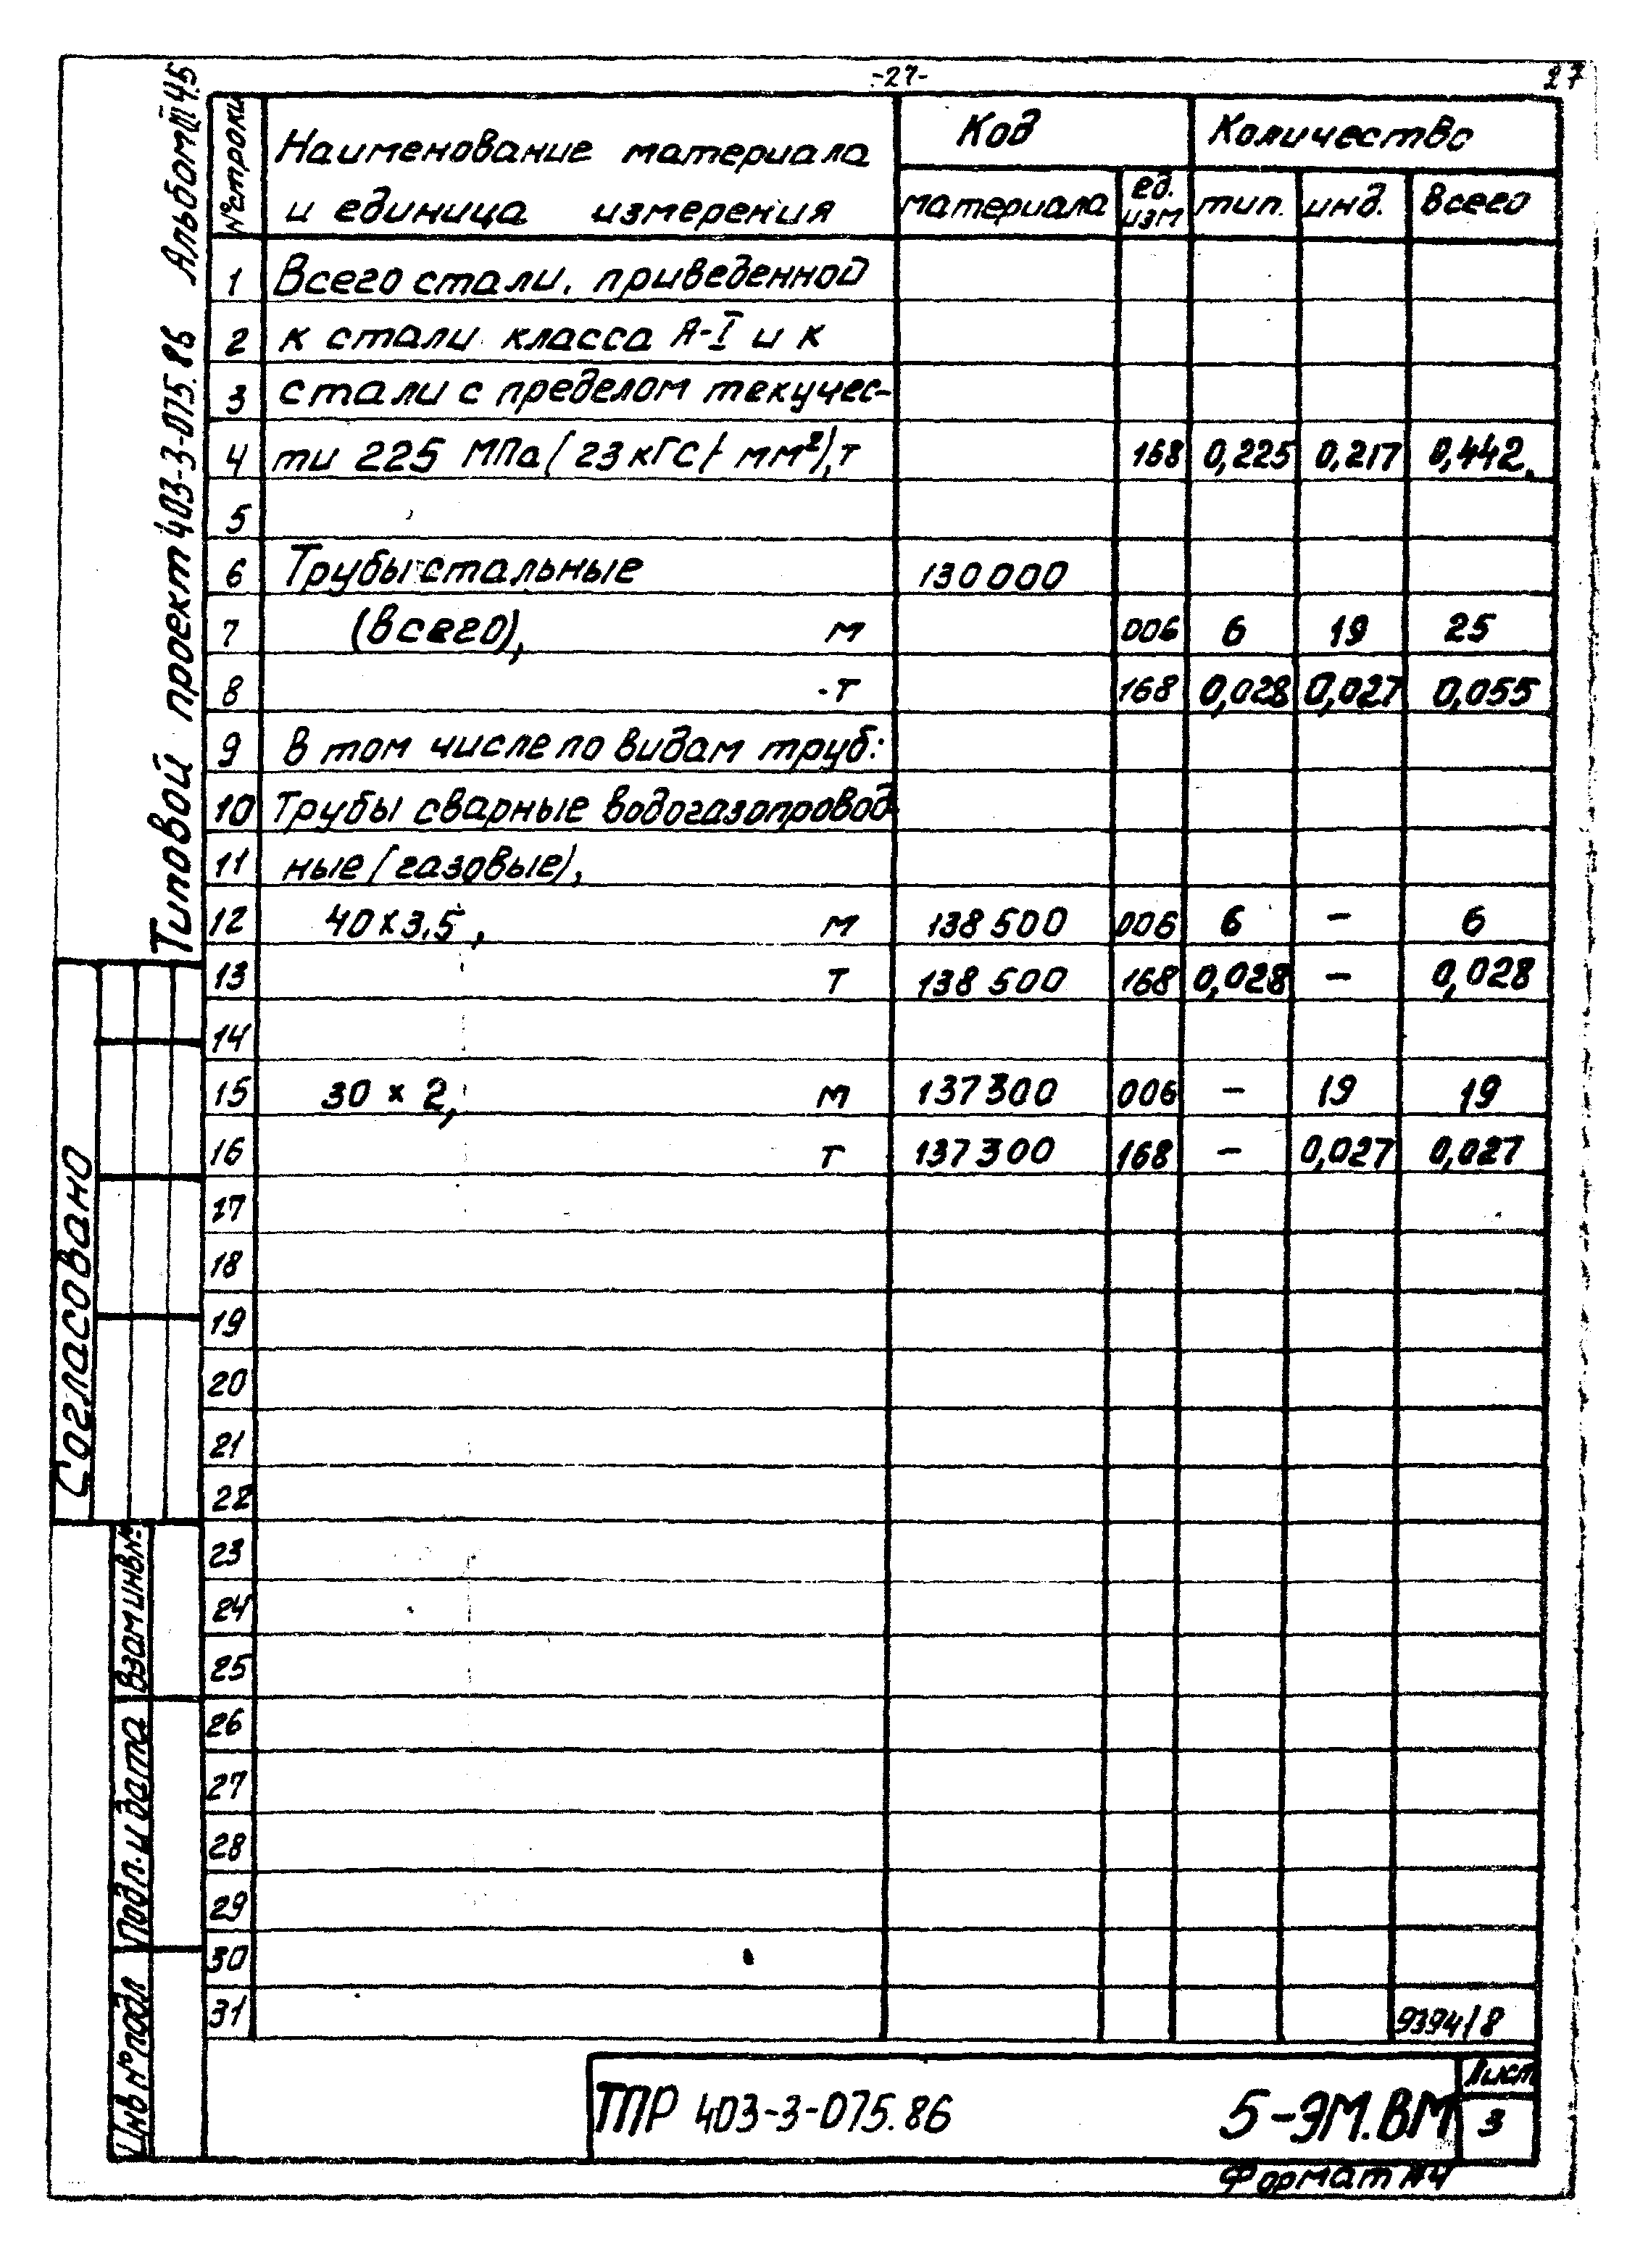 -27-
27
Типовой проект 403-3-075.86 Альбом III ч.5
№ строки
Наименование материала
и единица измерения
Код
Количество
материала
ед.
изм
тип.
инд.
всего
1 Всего стали, приведенной
2 к стали класса А-I и к
3 стали с пределом текучес-
4 ти 225 МПа (23 кГС/ мм²), т 168 0,225 0,217 0,442
5
6 Трубы стальные 130000
7 (всего), м 006 6 19 25
8 т 168 0,028 0,027 0,055
9 в том числе по видам труб:
10 Трубы сварные водогазопровод-
11 ные (газовые),
12 40х3.5, м 138500 006 6 - 6
13 т 138500 168 0,028 - 0,028
14
15 30 х 2, м 137300 006 - 19 19
16 т 137300 168 - 0,027 0,027
17
18
19
20
21
22
23
24
25
26
27
28
29
30
31
9394/8
Согласовано
Взам инв.№
Подл. и дата
Инв №подл
ТПР 403-3-075.86
5-ЭМ.ВМ
Лист
3
Формат А4